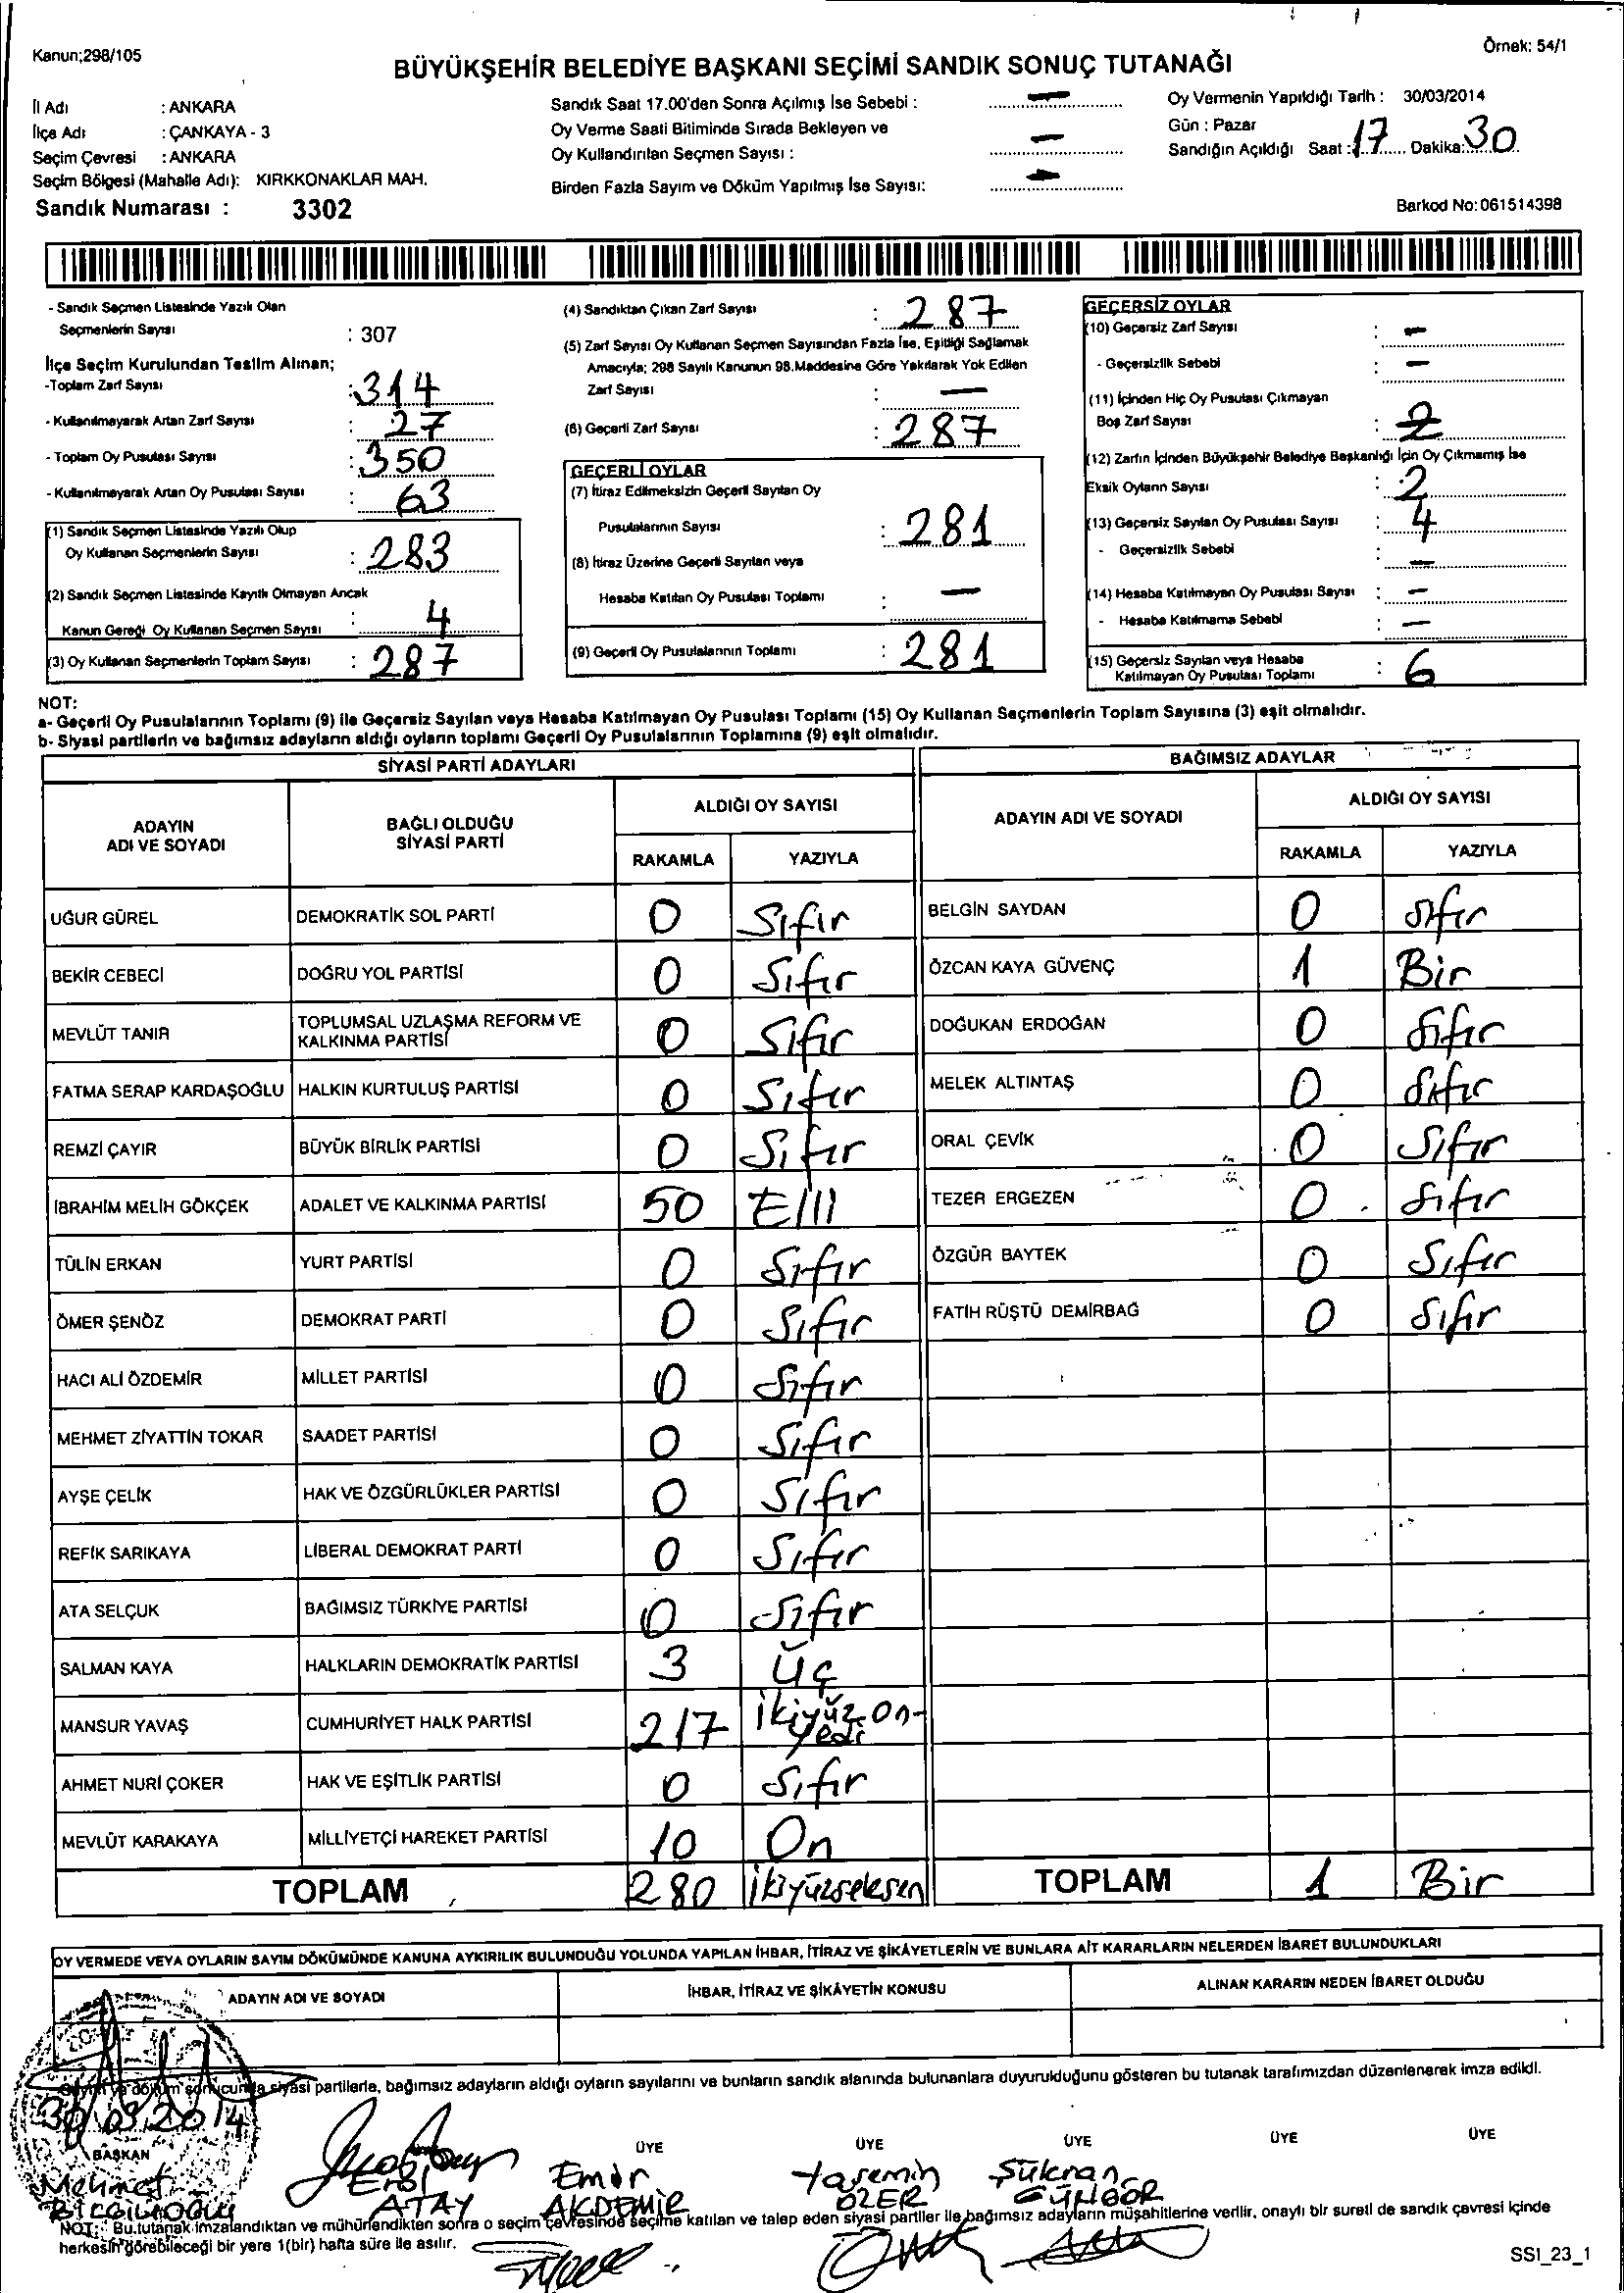 Kanun;298/105
Örnek: 54/1
BÜYÜKŞEHİR BELEDİYE BAŞKANI SEÇİMİ SANDIK SONUÇ TUTANAĞI
İl Adı : ANKARA
İlçe Adı : ÇANKAYA - 3
Seçim Çevresi : ANKARA
Seçim Bölgesi (Mahalle Adı): KIRKKONAKLAR MAH.
Sandık Numarası : 3302
Sandık Saat 17.00'den Sonra Açılmış İse Sebebi : —
Oy Verme Saati Bitiminde Sırada Bekleyen ve
Oy Kullandırılan Seçmen Sayısı : —
Birden Fazla Sayım ve Döküm Yapılmış İse Sayısı: —
Oy Vermenin Yapıldığı Tarih : 30/03/2014
Gün : Pazar
Sandığın Açıldığı Saat : 17 Dakika: 30
Barkod No:061514398
- Sandık Seçmen Listesinde Yazılı Olan
Seçmenlerin Sayısı : 307
İlçe Seçim Kurulundan Teslim Alınan;
-Toplam Zarf Sayısı : 314
- Kullanılmayarak Artan Zarf Sayısı : 27
- Toplam Oy Pusulası Sayısı : 350
- Kullanılmayarak Artan Oy Pusulası Sayısı : 63
(1) Sandık Seçmen Listesinde Yazılı Olup
Oy Kullanan Seçmenlerin Sayısı : 283
(2) Sandık Seçmen Listesinde Kayıtlı Olmayan Ancak
Kanun Gereği Oy Kullanan Seçmen Sayısı : 4
(3) Oy Kullanan Seçmenlerin Toplam Sayısı : 287
(4) Sandıktan Çıkan Zarf Sayısı : 287
(5) Zarf Sayısı Oy Kullanan Seçmen Sayısından Fazla İse, Eşitliği Sağlamak
Amacıyla; 298 Sayılı Kanunun 98.Maddesine Göre Yakılarak Yok Edilen
Zarf Sayısı : —
(6) Geçerli Zarf Sayısı : 287
GEÇERLİ OYLAR
(7) İtiraz Edilmeksizin Geçerli Sayılan Oy
Pusulalarının Sayısı : 281
(8) İtiraz Üzerine Geçerli Sayılan veya
Hesaba Katılan Oy Pusulası Toplamı : —
(9) Geçerli Oy Pusulalarının Toplamı : 281
GEÇERSİZ OYLAR
(10) Geçersiz Zarf Sayısı : —
- Geçersizlik Sebebi : —
(11) İçinden Hiç Oy Pusulası Çıkmayan
Boş Zarf Sayısı :
(12) Zarfın İçinden Büyükşehir Belediye Başkanlığı İçin Oy Çıkmamış İse
Eksik Oyların Sayısı : 2
(13) Geçersiz Sayılan Oy Pusulası Sayısı : 4
- Geçersizlik Sebebi : —
(14) Hesaba Katılmayan Oy Pusulası Sayısı : —
- Hesaba Katılmama Sebebi : —
(15) Geçersiz Sayılan veya Hesaba
Katılmayan Oy Pusulası Toplamı : 6
NOT:
a- Geçerli Oy Pusulalarının Toplamı (9) ile Geçersiz Sayılan veya Hesaba Katılmayan Oy Pusulası Toplamı (15) Oy Kullanan Seçmenlerin Toplam Sayısına (3) eşit olmalıdır.
b- Siyasi partilerin ve bağımsız adayların aldığı oyların toplamı Geçerli Oy Pusulalarının Toplamına (9) eşit olmalıdır.
SİYASİ PARTİ ADAYLARI
ADAYIN ADI VE SOYADI
BAĞLI OLDUĞU SİYASİ PARTİ
ALDIĞI OY SAYISI
RAKAMLA YAZIYLA
UĞUR GÜREL DEMOKRATİK SOL PARTİ 0 Sıfır
BEKİR CEBECİ DOĞRU YOL PARTİSİ 0 Sıfır
MEVLÜT TANIR TOPLUMSAL UZLAŞMA REFORM VE KALKINMA PARTİSİ 0 Sıfır
FATMA SERAP KARDAŞOĞLU HALKIN KURTULUŞ PARTİSİ 0 Sıfır
REMZİ ÇAYIR BÜYÜK BİRLİK PARTİSİ 0 Sıfır
İBRAHİM MELİH GÖKÇEK ADALET VE KALKINMA PARTİSİ 50 Elli
TÜLİN ERKAN YURT PARTİSİ 0 Sıfır
ÖMER ŞENÖZ DEMOKRAT PARTİ 0 Sıfır
HACI ALİ ÖZDEMİR MİLLET PARTİSİ 0 Sıfır
MEHMET ZİYATTİN TOKAR SAADET PARTİSİ 0 Sıfır
AYŞE ÇELİK HAK VE ÖZGÜRLÜKLER PARTİSİ 0 Sıfır
REFİK SARIKAYA LİBERAL DEMOKRAT PARTİ 0 Sıfır
ATA SELÇUK BAĞIMSIZ TÜRKİYE PARTİSİ 0 Sıfır
SALMAN KAYA HALKLARIN DEMOKRATİK PARTİSİ 3 Üç
MANSUR YAVAŞ CUMHURİYET HALK PARTİSİ 217 İkiyüz On-yedi
AHMET NURİ ÇOKER HAK VE EŞİTLİK PARTİSİ 0 Sıfır
MEVLÜT KARAKAYA MİLLİYETÇİ HAREKET PARTİSİ 10 On
TOPLAM 280 İkiyüzseksen
BAĞIMSIZ ADAYLAR
ADAYIN ADI VE SOYADI
ALDIĞI OY SAYISI
RAKAMLA YAZIYLA
BELGİN SAYDAN 0 Sıfır
ÖZCAN KAYA GÜVENÇ 1 Bir
DOĞUKAN ERDOĞAN 0 Sıfır
MELEK ALTINTAŞ 0 Sıfır
ORAL ÇEVİK 0 Sıfır
TEZER ERGEZEN 0 Sıfır
ÖZGÜR BAYTEK 0 Sıfır
FATİH RÜŞTÜ DEMİRBAĞ 0 Sıfır
TOPLAM 1 Bir
OY VERMEDE VEYA OYLARIN SAYIM DÖKÜMÜNDE KANUNA AYKIRILIK BULUNDUĞU YOLUNDA YAPILAN İHBAR, İTİRAZ VE ŞİKÂYETLERİN VE BUNLARA AİT KARARLARIN NELERDEN İBARET BULUNDUKLARI
ADAYIN ADI VE SOYADI
İHBAR, İTİRAZ VE ŞİKÂYETİN KONUSU
ALINAN KARARIN NEDEN İBARET OLDUĞU
Sayım ve döküm sonucunda siyasi partilerle, bağımsız adayların aldığı oyların sayılarını ve bunların sandık alanında bulunanlara duyurulduğunu gösteren bu tutanak tarafımızdan düzenlenerek imza edildi.
30/03/2014
BAŞKAN ÜYE ÜYE ÜYE ÜYE ÜYE
Mehmet
ATAY
Emir AKDEMİR
Yasemin ÖZER
Şükran GÜNGÖR
NOT: Bu tutanak imzalandıktan ve mühürlendikten sonra o seçim çevresinde seçime katılan ve talep eden siyasi partiler ile bağımsız adayların müşahitlerine verilir, onaylı bir sureti de sandık çevresi içinde
herkesin görebileceği bir yere 1(bir) hafta süre ile asılır.
SSI_23_1